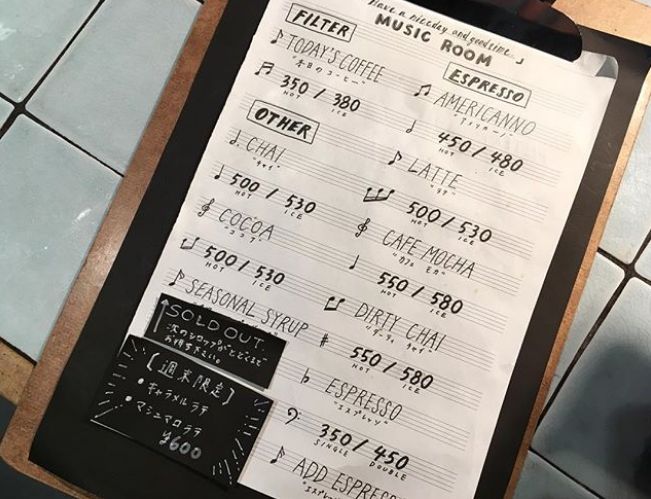 Have a niceday and goodtime...
MUSIC ROOM
FILTER
TODAY'S COFFEE
"本日のコーヒー"
350 / 380
HOT ICE
OTHER
CHAI
"チャイ"
500 / 530
HOT ICE
COCOA
"ココア"
500 / 530
HOT ICE
SEASONAL SYRUP
↑SOLD OUT.
次のシロップがとどくまで
お待ち下さい。
【週末限定】
・キャラメルラテ
・マシュマロラテ
¥600
ESPRESSO
AMERICANNO
"アメリカーノ"
450 / 480
HOT ICE
LATTE
"ラテ"
500 / 530
HOT ICE
CAFE MOCHA
"カフェ モカ"
550 / 580
HOT ICE
DIRTY CHAI
"ダーティ チャイ"
550 / 580
HOT ICE
ESPRESSO
"エスプレッソ"
350 / 450
SINGLE DOUBLE
ADD ESPRES